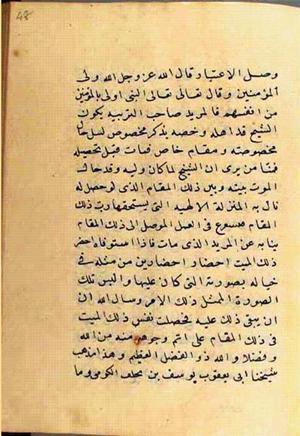 48
وصل الاعتبار قال الله عز وجل الله ولى
المؤمنين وقال تعالى النبى اولى بالمؤمنين
من انفسهم فالمريد صاحب التربية يكون
الشيخ قد اهله وخصه بذكر مخصوص لنيل حالة
مخصوصة ومقام خاص فمات قبل تحصيله
فمنا من يرى ان الشيخ لما كان وليه وقد حال
الموت بينه وبين ذلك المقام الذى لو حصل له
نال به المنزلة الالهية التى يستحقها رب ذلك
المقام فيشرع فى العمل الموصل الى ذلك المقام
نيابة عن المريد الذى مات فاذا استوفاه احضر
ذلك الميت احضار من مثله فى
خياله بصورته التى كان عليها والبس تلك
الصورة الممثلة ذلك الامر وسال الله ان
يبقى ذلك عليه فحصلت نفس ذلك الميت
فى ذلك المقام على اتم وجوهه منة من الله
وفضلا والله ذو الفضل العظيم وهذا مذهب
شيخنا ابى يعقوب يوسف بن يخلف الكومى وما